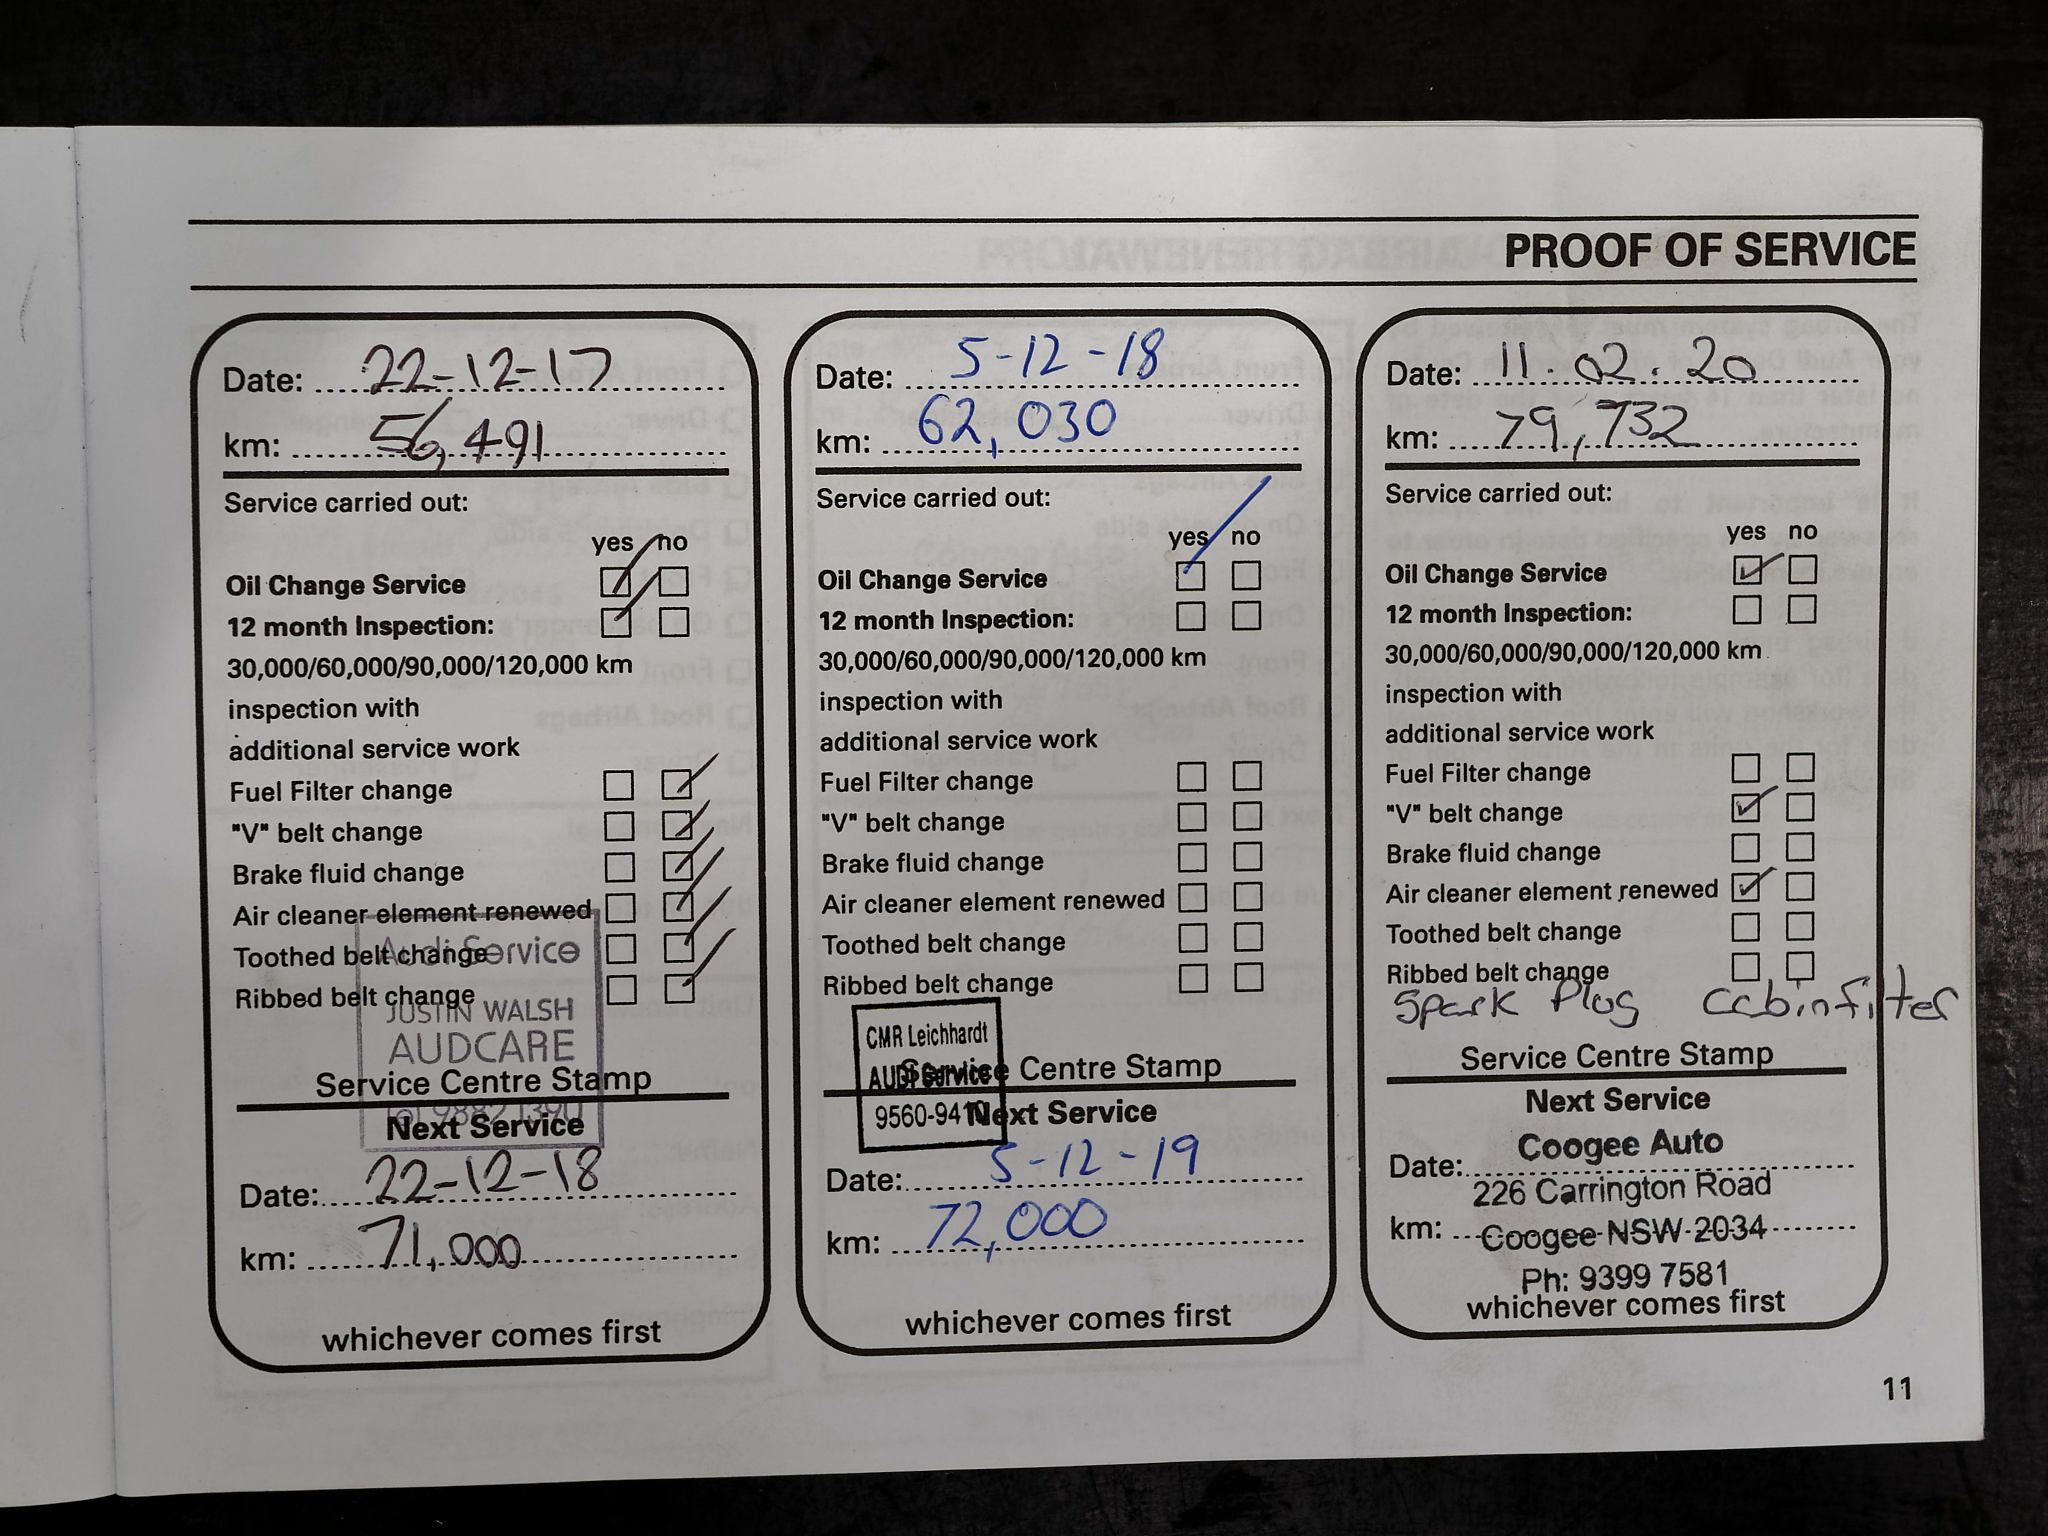 PROOF OF SERVICE
Date: 22-12-17
km: 56,491
Service carried out:
yes no
Oil Change Service
12 month Inspection:
30,000/60,000/90,000/120,000 km
inspection with
additional service work
Fuel Filter change
"V" belt change
Brake fluid change
Air cleaner element renewed
Toothed belt change
Ribbed belt change
Audi Service
JUSTIN WALSH
AUDCARE
Service Centre Stamp
9882 1390
Next Service
Date: 22-12-18
km: 71,000
whichever comes first
Date: 5-12-18
km: 62,030
Service carried out:
yes no
Oil Change Service
12 month Inspection:
30,000/60,000/90,000/120,000 km
inspection with
additional service work
Fuel Filter change
"V" belt change
Brake fluid change
Air cleaner element renewed
Toothed belt change
Ribbed belt change
CMR Leichhardt
AUDI Service
9560-9410
Service Centre Stamp
Next Service
Date: 5-12-19
km: 72,000
whichever comes first
Date: 11.02.20
km: 79,732
Service carried out:
yes no
Oil Change Service
12 month Inspection:
30,000/60,000/90,000/120,000 km
inspection with
additional service work
Fuel Filter change
"V" belt change
Brake fluid change
Air cleaner element renewed
Toothed belt change
Ribbed belt change
Spark Plug cabinfilter
Service Centre Stamp
Next Service
Coogee Auto
Date:
226 Carrington Road
km:
Coogee NSW 2034
Ph: 9399 7581
whichever comes first
11